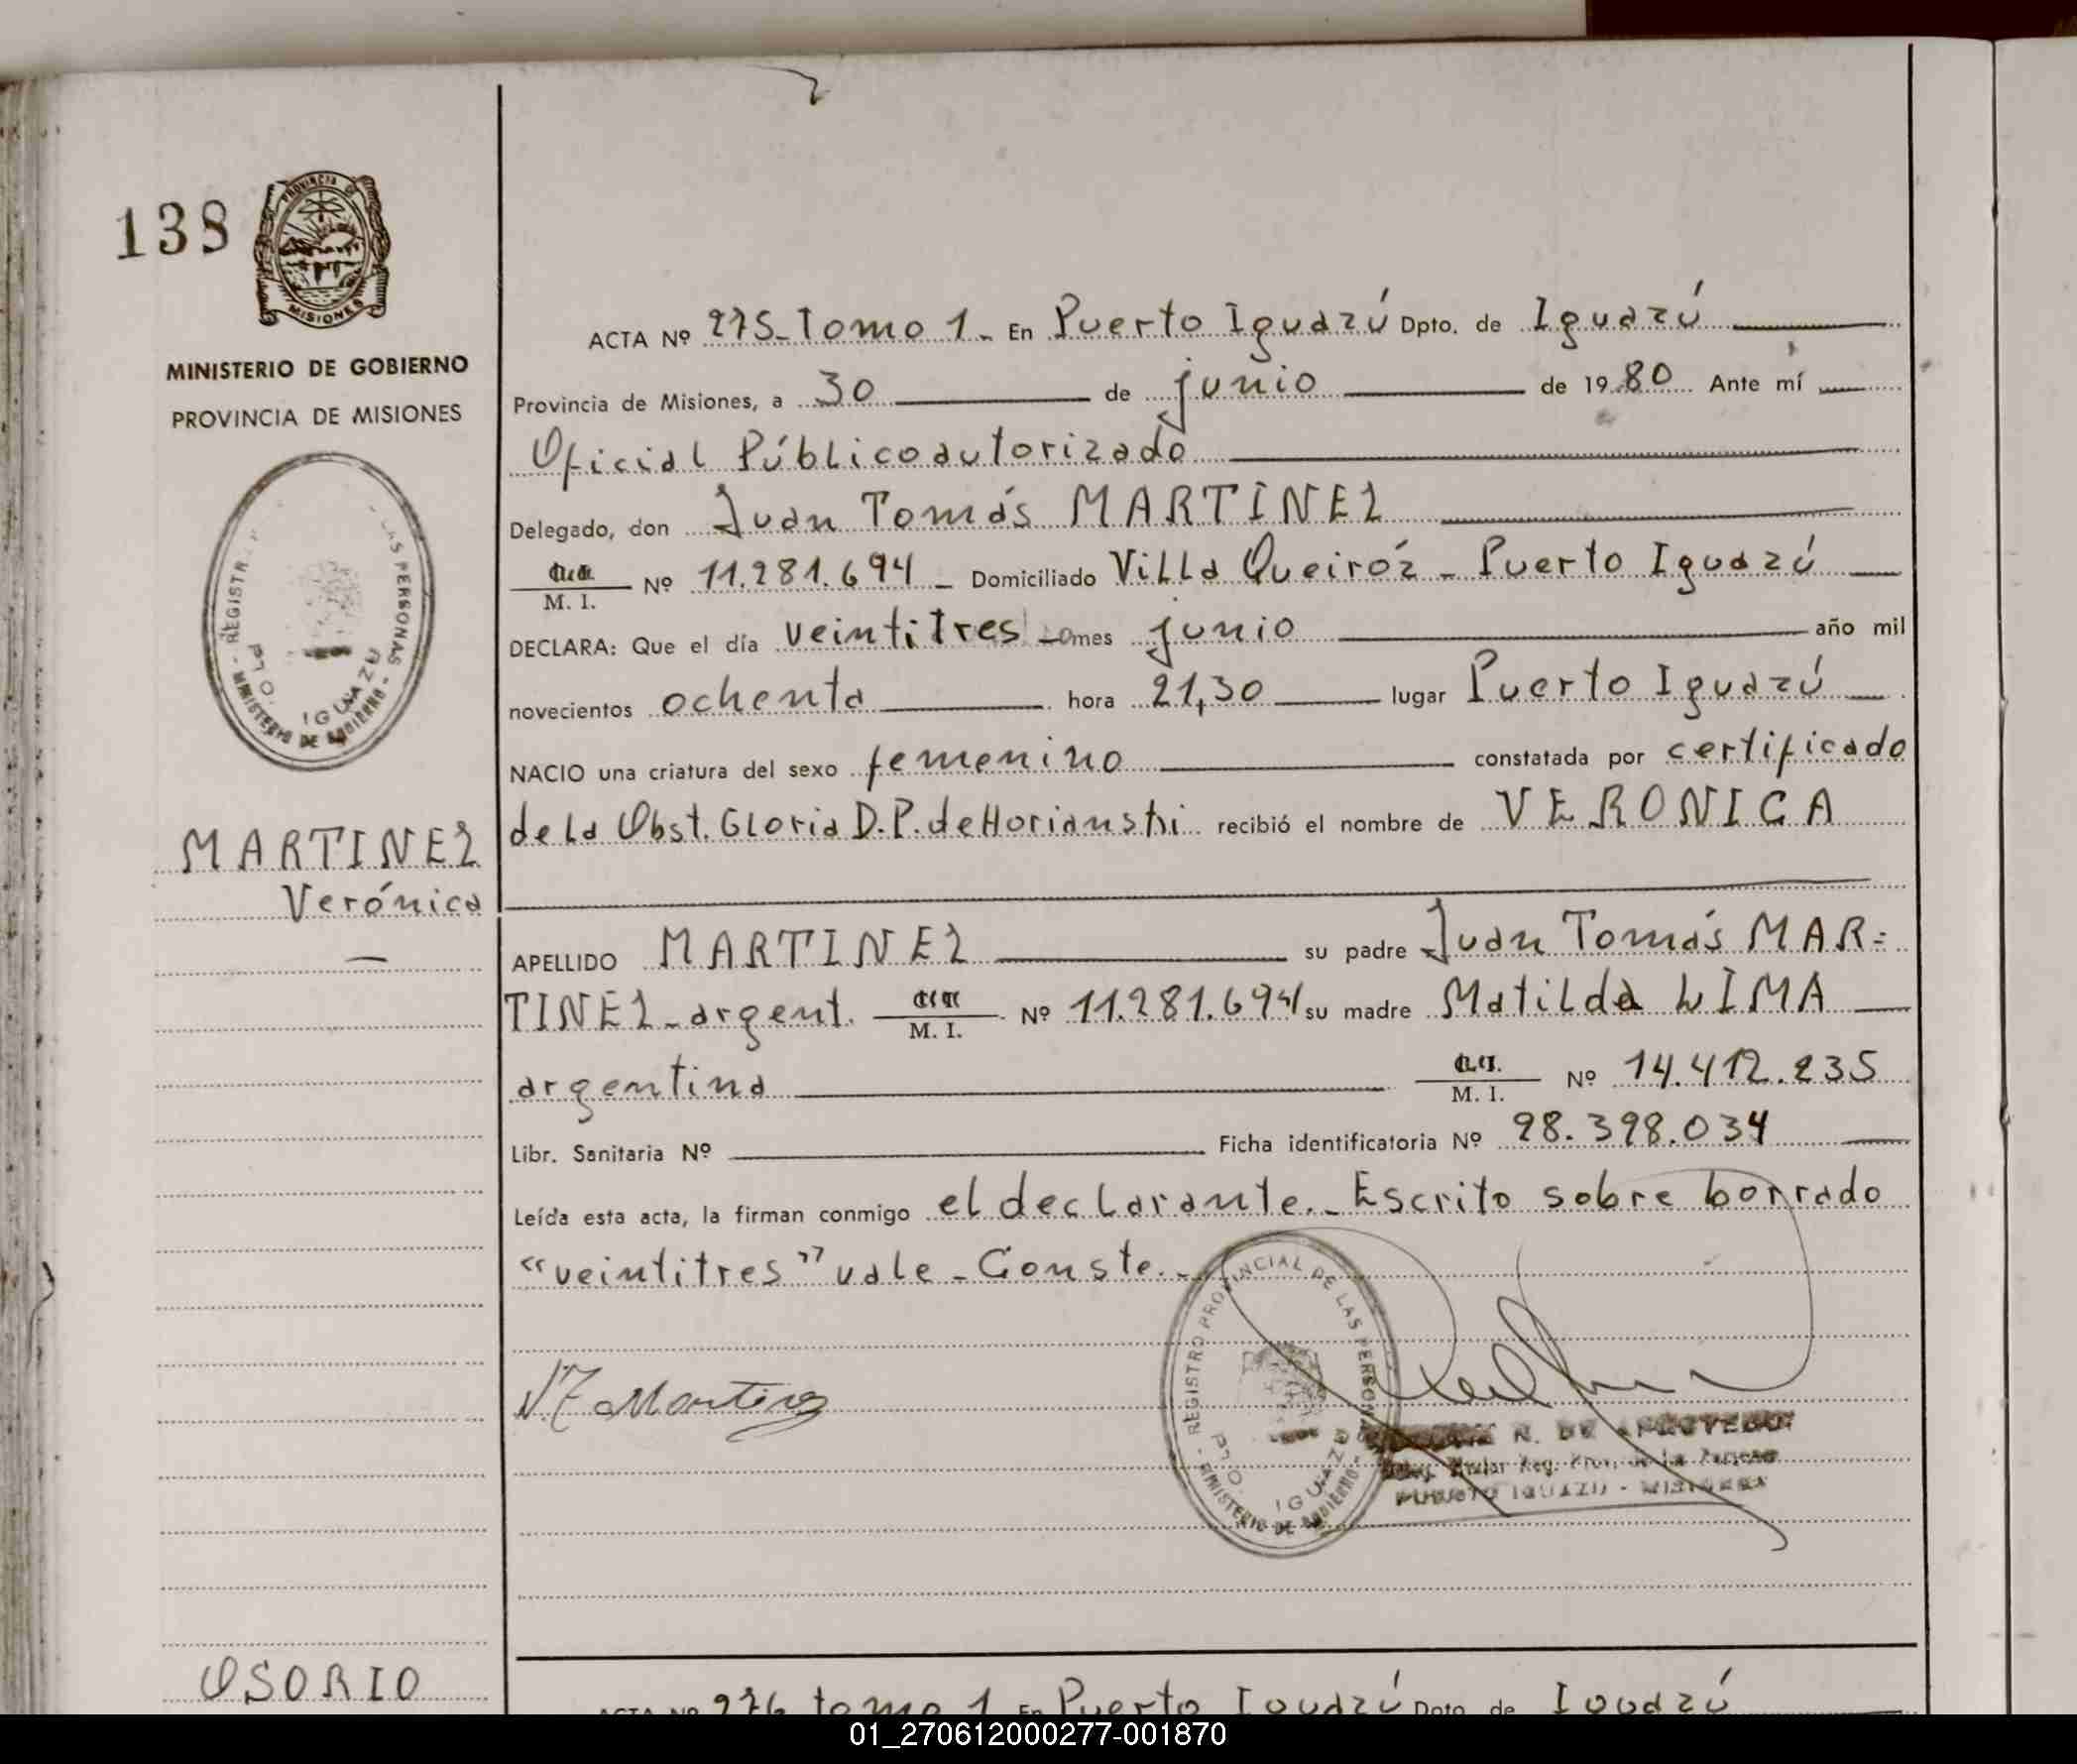 138
PROVINCIA DE
MISIONES
MINISTERIO DE GOBIERNO
PROVINCIA DE MISIONES
REGISTR LAS PERSONAS
PTO. IGUAZU
MINISTERIO DE GOBIERNO
MARTINEZ
Verónica
OSORIO
ACTA Nº 275_Tomo 1_ En Puerto Iguazú Dpto. de Iguazú
Provincia de Misiones, a 30 de junio de 1980 Ante mí
Oficial Público autorizado
Delegado, don Juan Tomás MARTINEZ
M. I. Nº 11.281.694 _ Domiciliado Villa Queiróz _ Puerto Iguazú
DECLARA: Que el día veintitres mes junio año mil
novecientos ochenta hora 21,30 lugar Puerto Iguazú
NACIO una criatura del sexo femenino constatada por certificado
de la Obst. Gloria D.P. de Horianski recibió el nombre de VERONICA
APELLIDO MARTINEZ su padre Juan Tomás MAR=
TINEZ_argent. M. I. Nº 11.281.694 su madre Matilde LIMA
argentina M. I. Nº 14.412.235
Libr. Sanitaria Nº Ficha identificatoria Nº 98.398.034
Leída esta acta, la firman conmigo el declarante._ Escrito sobre borrado
"veintitres" vale _ Conste._
REGISTRO PROVINCIAL DE LAS PERSONAS
PTO. IGUAZU
MINISTERIO DE GOBIERNO
Martinez
PUERTO IGUAZU - MISIONES
ACTA Nº 276 tomo 1 En Puerto Iguazú Dpto. de Iguazú
01_270612000277-001870